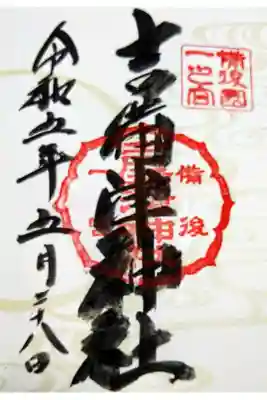 備後國
一之宮
吉備津神社
備後
一宮
吉備津
神社
令和五年五月二十八日